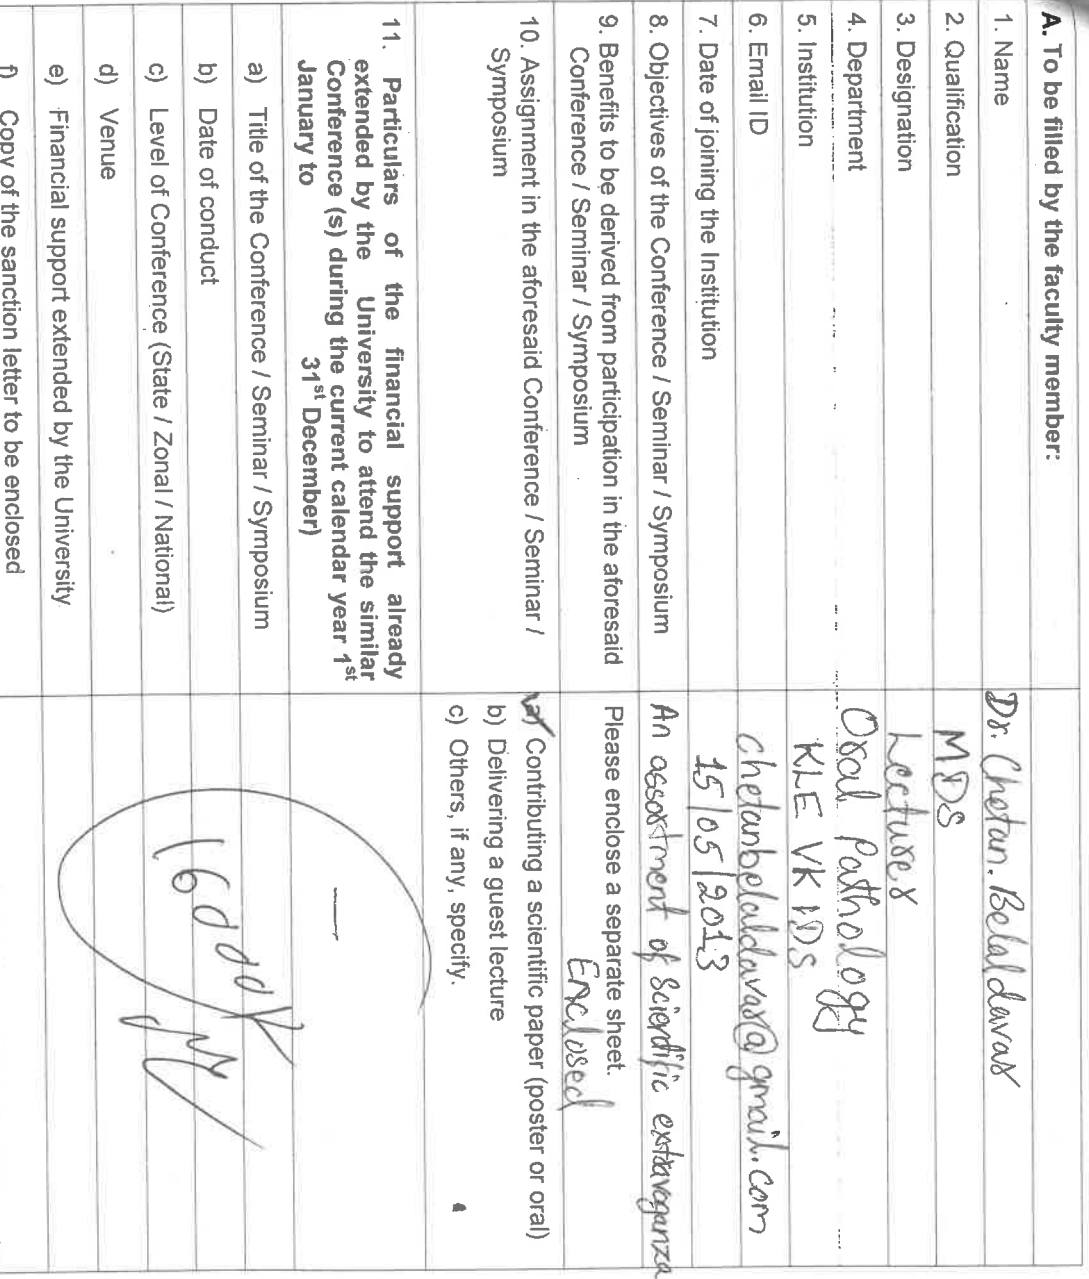 A. To be filled by the faculty member:
1. Name
Dr. Chetan. Belaldavar
2. Qualification
MDS
3. Designation
Lecturer
4. Department
Oral Pathology
5. Institution
KLE VK IDS
6. Email ID
chetanbelaldavar@gmail.com
7. Date of joining the Institution
15/05/2013
8. Objectives of the Conference / Seminar / Symposium
An assortment of Scientific extravaganza
9. Benefits to be derived from participation in the aforesaid
Conference / Seminar / Symposium
Please enclose a separate sheet.
Enclosed
10. Assignment in the aforesaid Conference / Seminar /
Symposium
a) Contributing a scientific paper (poster or oral)
b) Delivering a guest lecture
c) Others, if any, specify.
11. Particulars of the financial support already
extended by the University to attend the similar
Conference (s) during the current calendar year 1st
January to 31st December)
—
a) Title of the Conference / Seminar / Symposium
b) Date of conduct
c) Level of Conference (State / Zonal / National)
d) Venue
e) Financial support extended by the University
f) Copy of the sanction letter to be enclosed